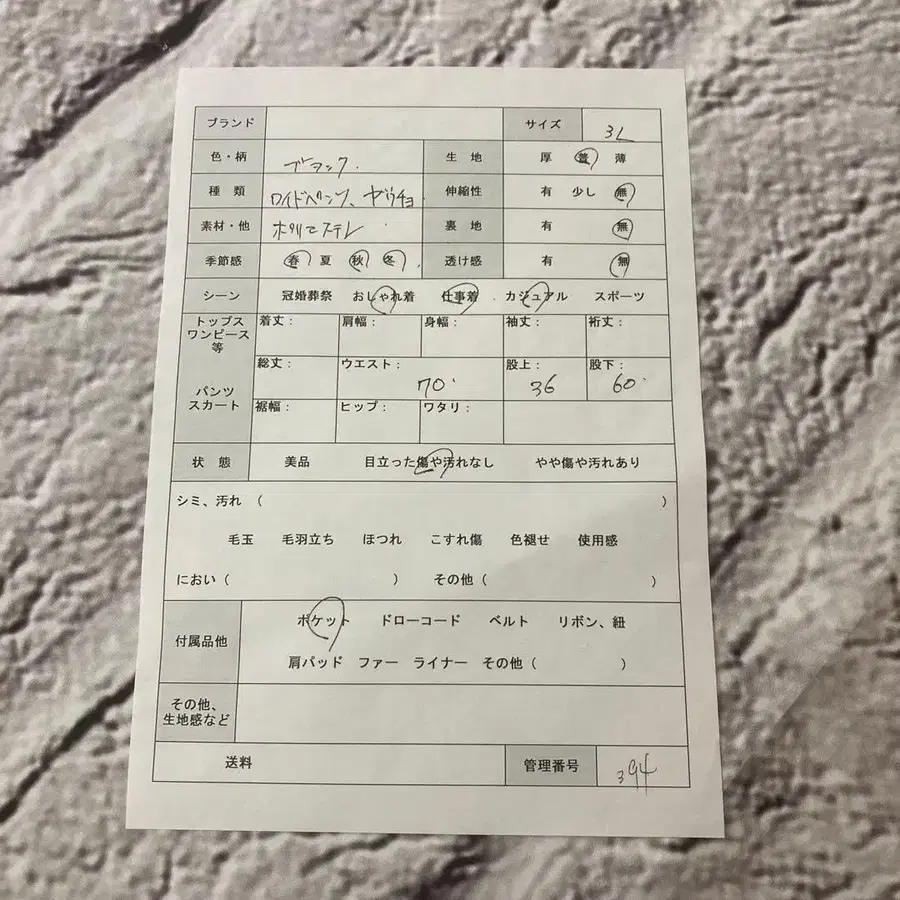 ブランド サイズ 3L
色・柄 ブラック. 生地 厚 普 薄
種類 ワイドパンツ、ガウチョ 伸縮性 有 少し 無
素材・他 ポリエステル 裏地 有 無
季節感 春 夏 秋 冬 透け感 有 無
シーン 冠婚葬祭 おしゃれ着 仕事着 カジュアル スポーツ
トップス
ワンピース
等
着丈: 肩幅: 身幅: 袖丈: 裄丈:
パンツ
スカート
総丈: ウエスト: 70 股上: 36 股下: 60
裾幅: ヒップ: ワタリ:
状態 美品 目立った傷や汚れなし やや傷や汚れあり
シミ、汚れ ( )
毛玉 毛羽立ち ほつれ こすれ傷 色褪せ 使用感
におい ( ) その他 ( )
付属品他 ポケット ドローコード ベルト リボン、紐
肩パッド ファー ライナー その他 ( )
その他、
生地感など
送料 管理番号 394